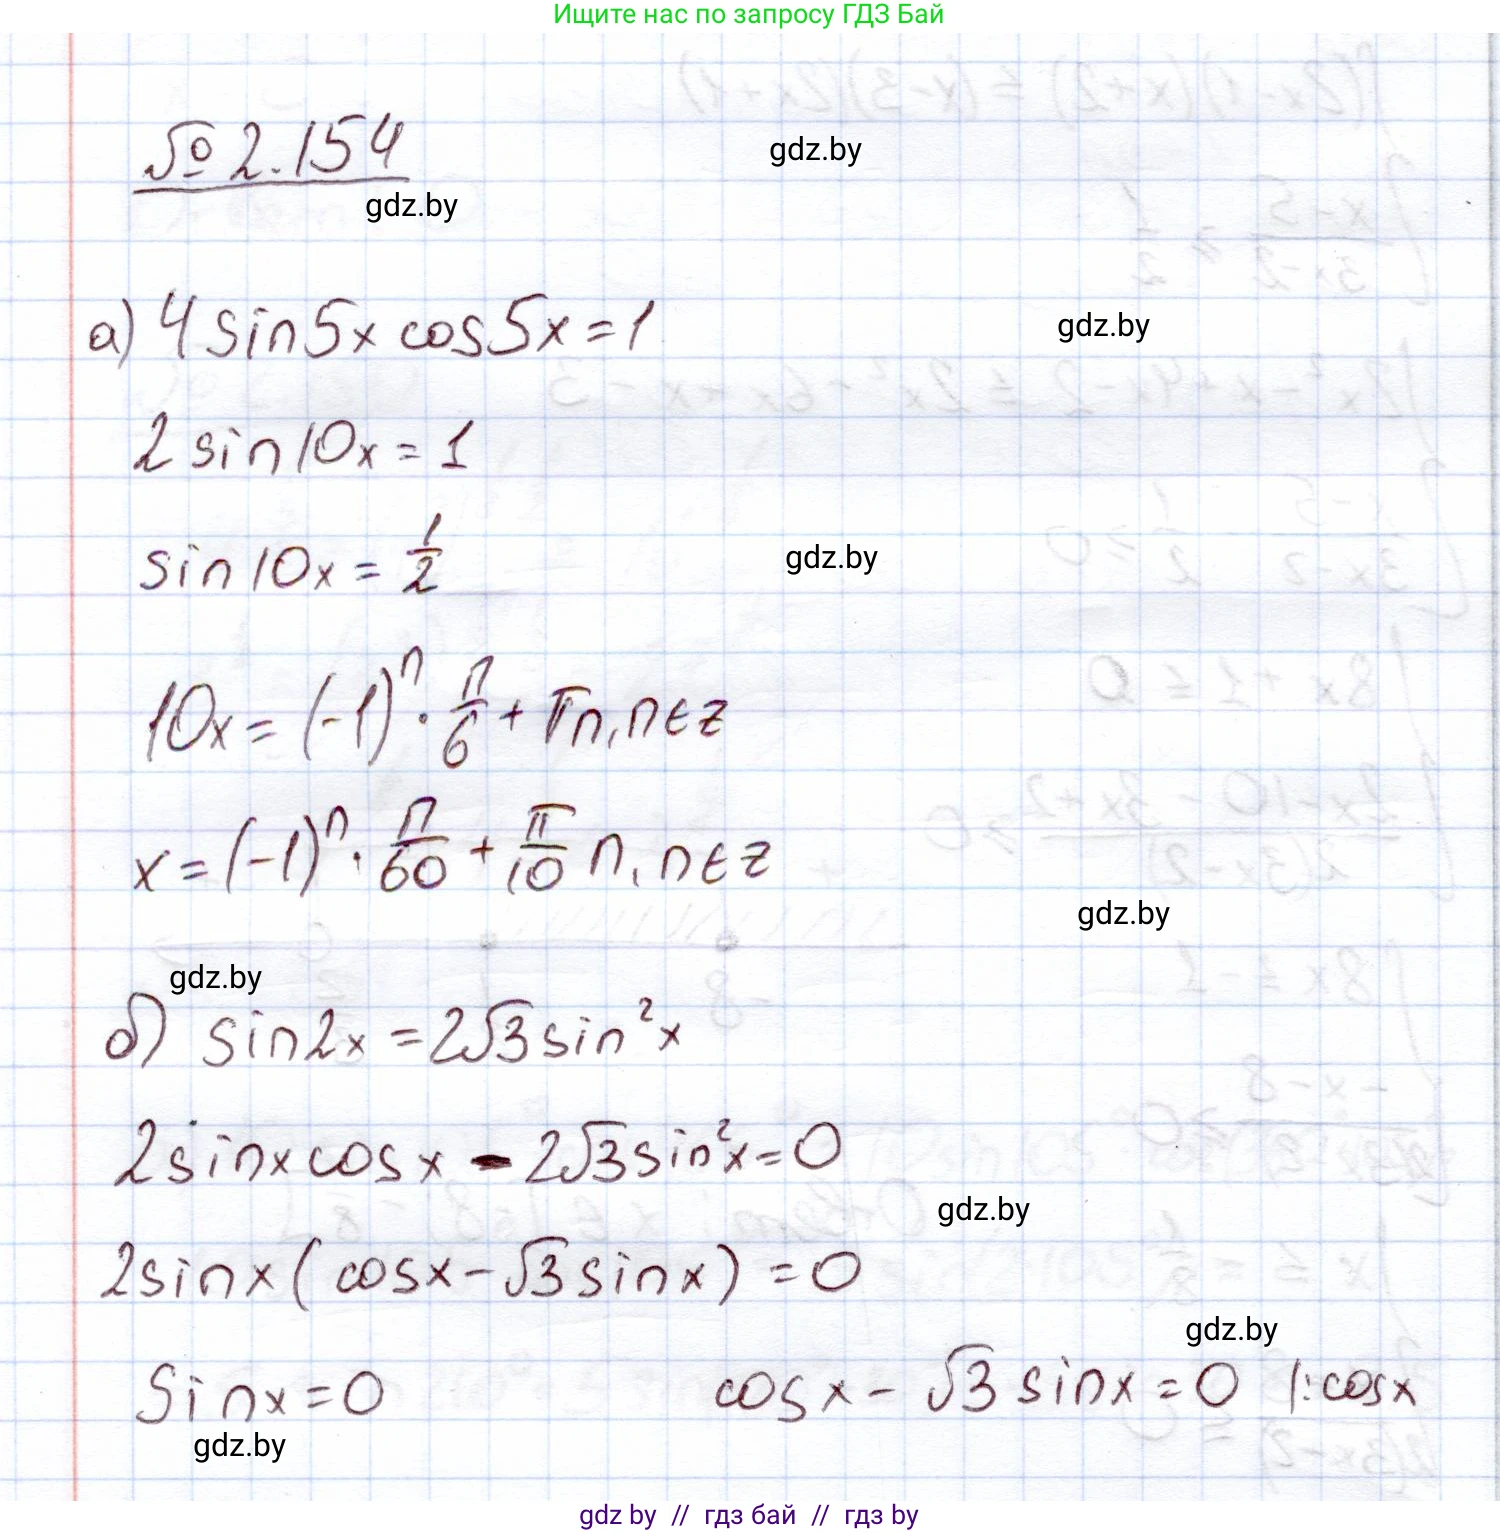 Ищите нас по запросу ГДЗ Бай
№ 2.154
gdz.by
gdz.by
а) 4 sin5x cos5x = 1
gdz.by
2 sin10x = 1
sin10x = 1/2
gdz.by
10x = (-1)^n · π/6 + πn, n∈z
x = (-1)^n · π/60 + π/10 n, n∈z
gdz.by
gdz.by
б) sin2x = 2√3 sin²x
2sinx cosx - 2√3 sin²x = 0
gdz.by
2sinx (cosx - √3 sinx) = 0
gdz.by
sinx = 0 cosx - √3 sinx = 0 |: cosx
gdz.by
gdz.by // гдз бай // гдз by